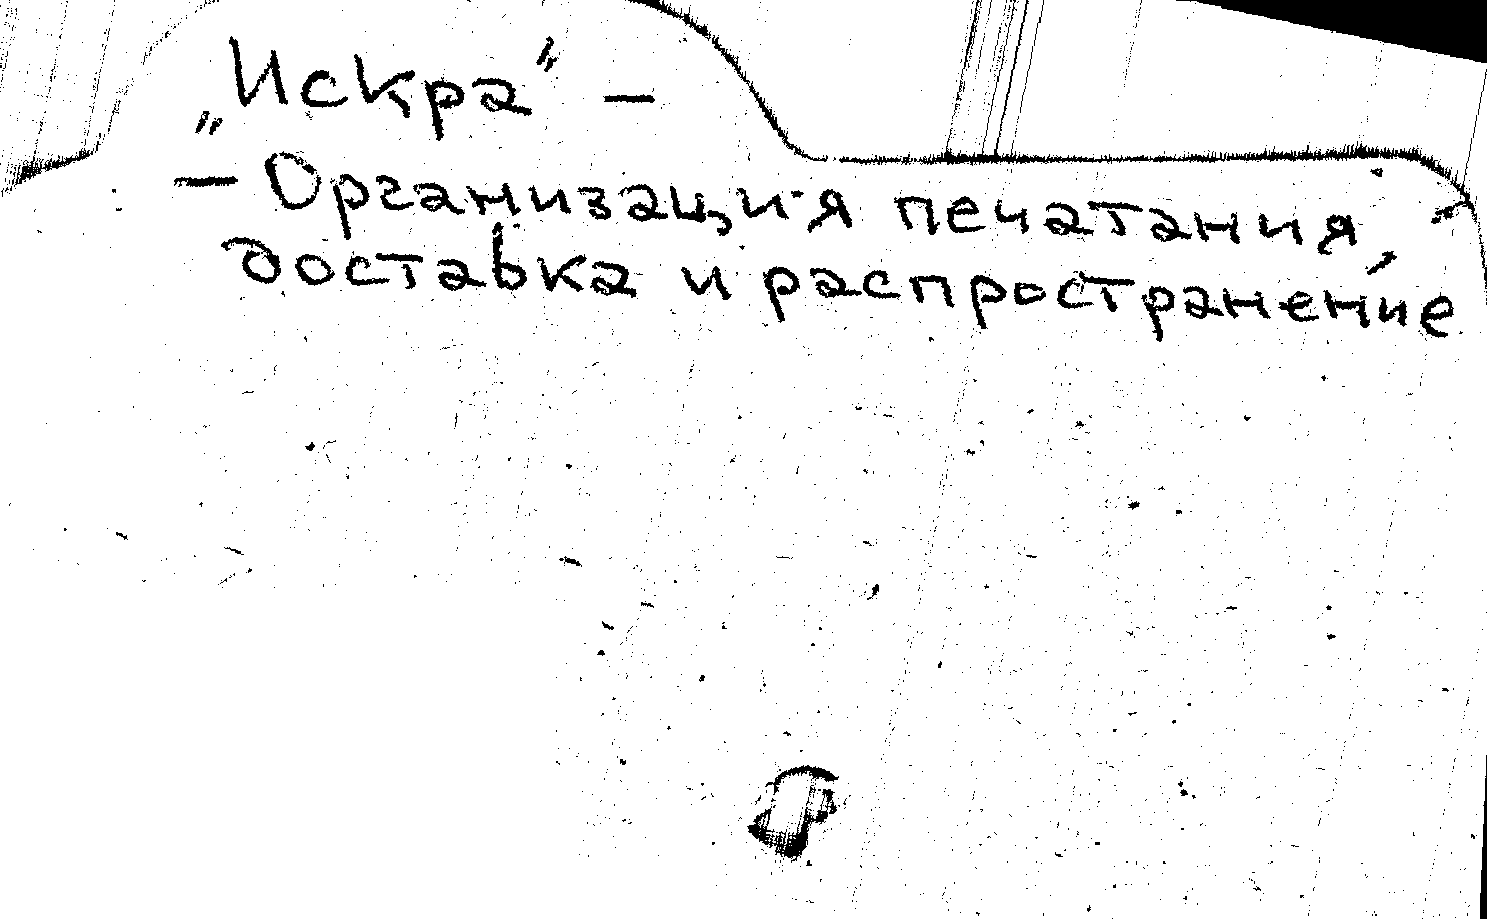 „Искра" —
— Организация печатания,
доставка и распространение